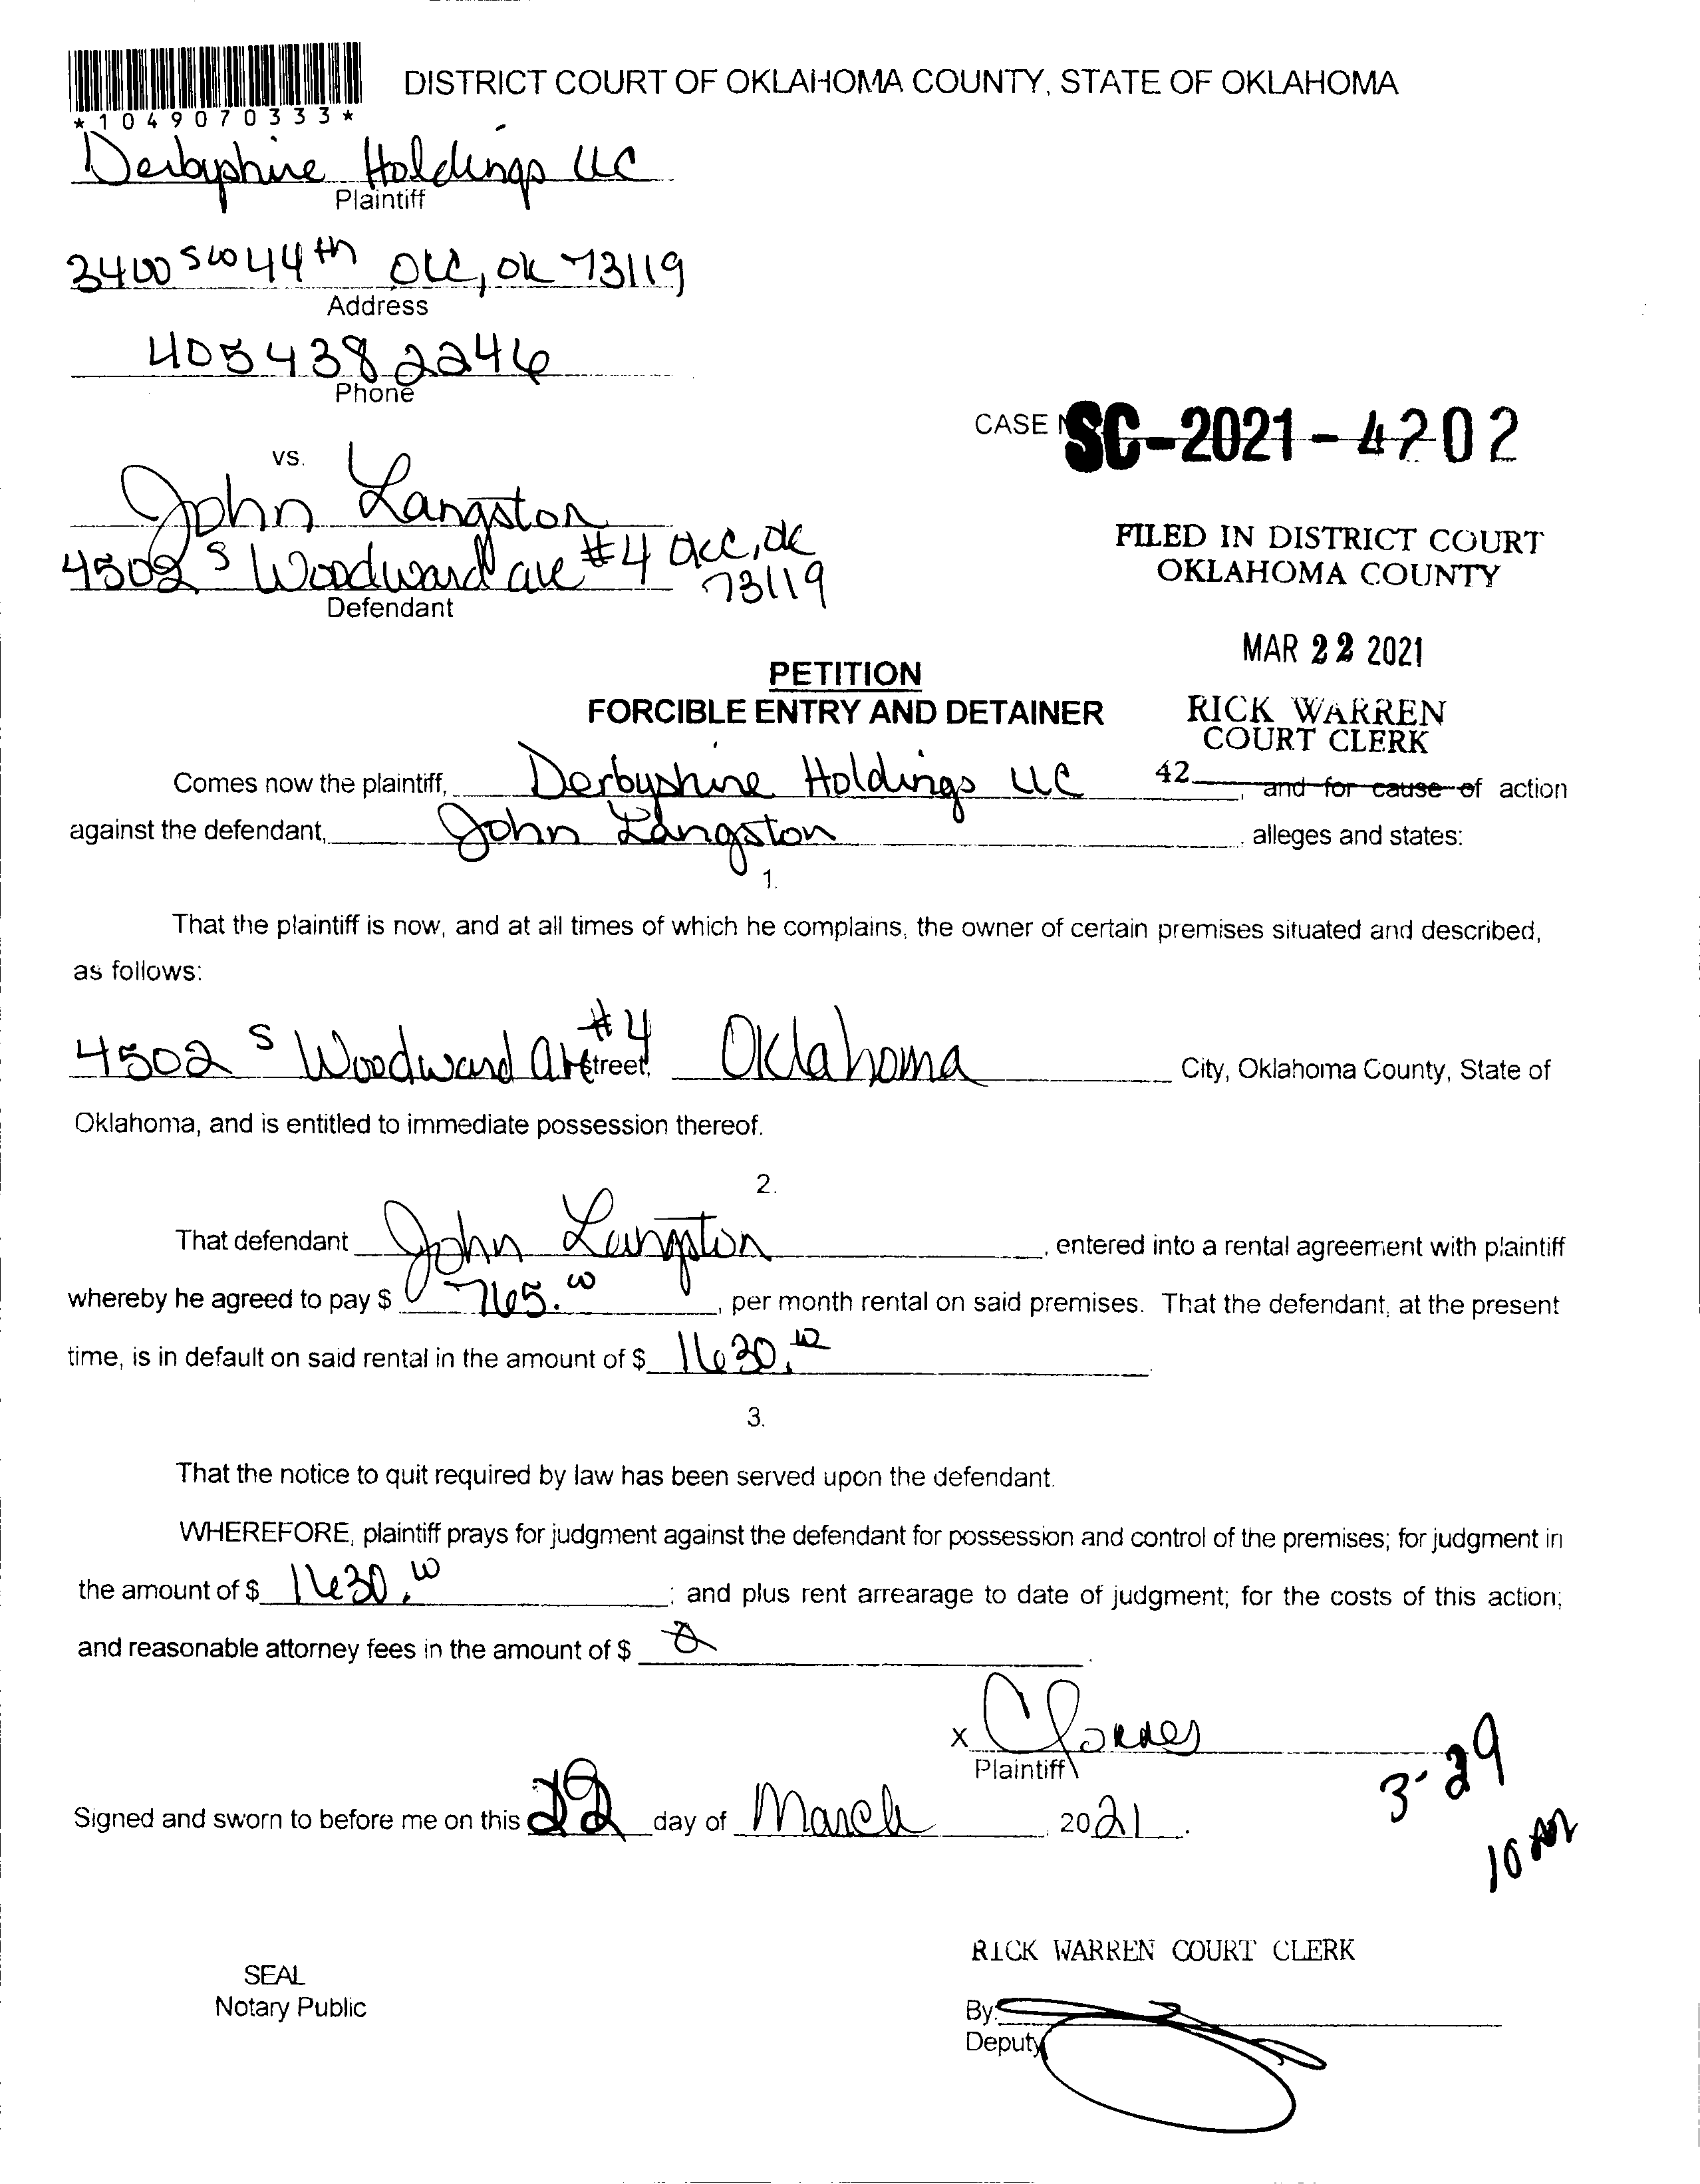 DISTRICT COURT OF OKLAHOMA COUNTY, STATE OF OKLAHOMA
*1049070333*
Derbyshire Holdings LLC
Plaintiff
3400 SW 44th OKC, OK 73119
Address
405 438 2246
Phone
CASE N SC-2021-4202
vs.
John Langston
4502 S Woodward ave #4 OKC, OK
73119
Defendant
FILED IN DISTRICT COURT
OKLAHOMA COUNTY
MAR 22 2021
PETITION
FORCIBLE ENTRY AND DETAINER
RICK WARREN
COURT CLERK
Comes now the plaintiff, Derbyshire Holdings LLC 42 , and for cause of action
against the defendant, John Langston , alleges and states:
1.
That the plaintiff is now, and at all times of which he complains, the owner of certain premises situated and described,
as follows:
4502 S Woodward Ave #4 Street, Oklahoma City, Oklahoma County, State of
Oklahoma, and is entitled to immediate possession thereof.
2.
That defendant John Langston , entered into a rental agreement with plaintiff
whereby he agreed to pay $ 765.00 , per month rental on said premises. That the defendant, at the present
time, is in default on said rental in the amount of $ 1630.00 .
3.
That the notice to quit required by law has been served upon the defendant.
WHEREFORE, plaintiff prays for judgment against the defendant for possession and control of the premises; for judgment in
the amount of $ 1630.00 ; and plus rent arrearage to date of judgment; for the costs of this action;
and reasonable attorney fees in the amount of $ 0 .
X
Plaintiff
3-29
10 AM
Signed and sworn to before me on this 22 day of March , 2021.
RICK WARREN COURT CLERK
SEAL
Notary Public
By:
Deputy